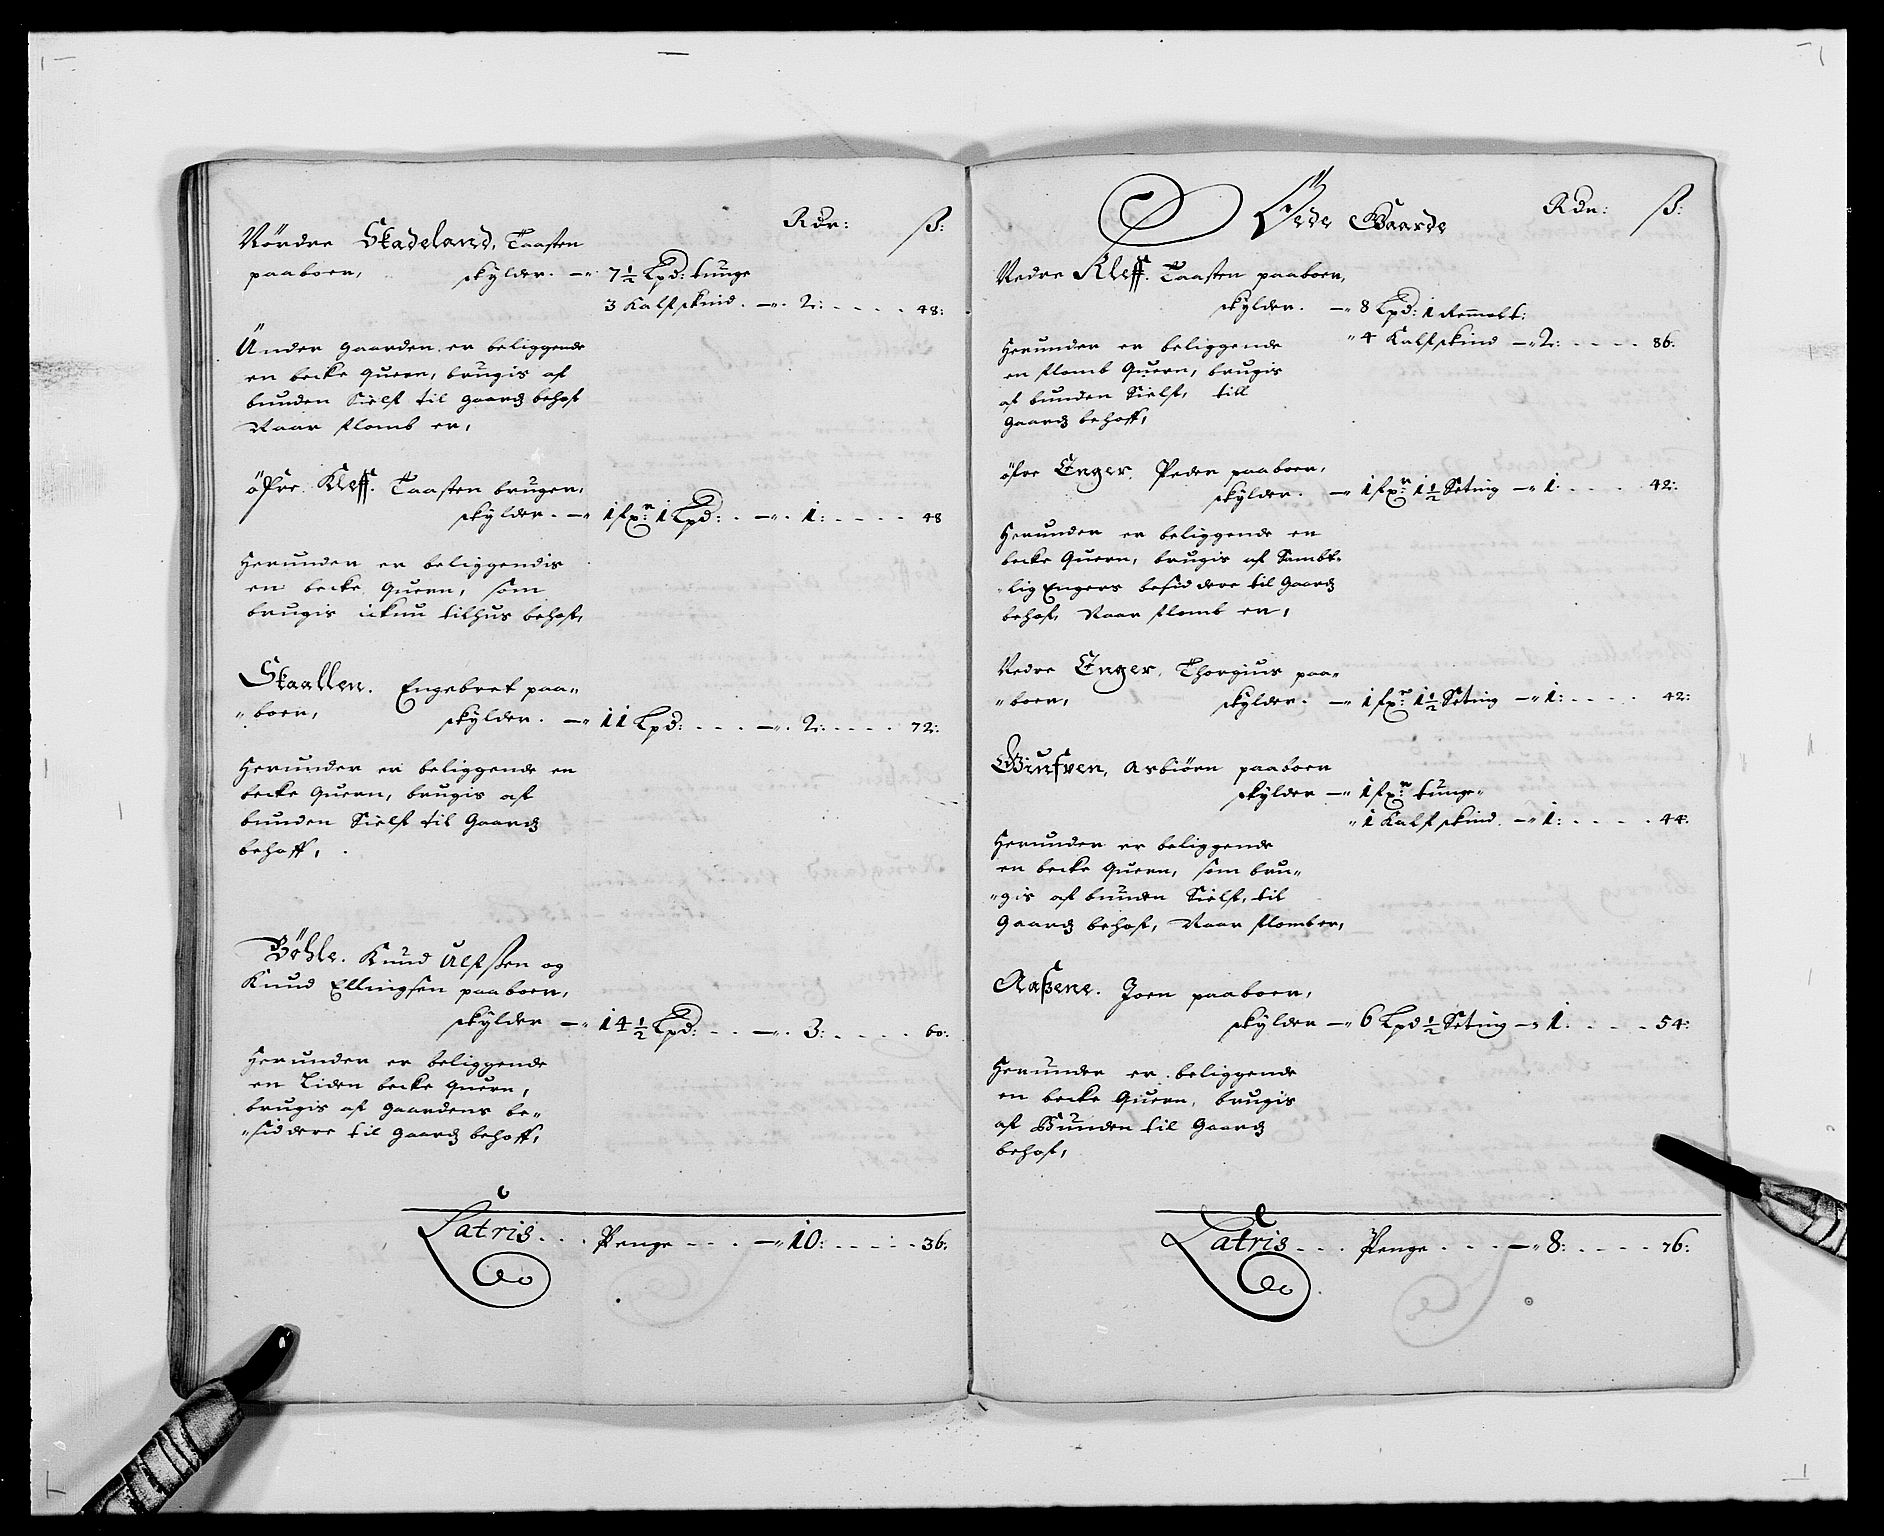 Rdr: ß:
Nördre Skadeland, Taasten
paaboer, skylder. — 7½ Lpd: tunge
3 Kalfskind. — 2: - - - - 48:
Under gaarden er beliggende
en becke quern, brugis af
bunden Sielf til gaards behof
Naar flomb er,
öfre Kleff. Taasten bruger,
skylder. — 1 1 Lpd: - - — 1: - - - - 48
Herunder er beliggendis
en becke Quern, som
brugis ickun tilhus behof,
Skaallen. Engebret paa„
„boer, skylder. — 11 Lpd: - - - — 2: - - - - 72:
Herunder er beliggende en
becke Quern, brugis af
bunden Sielf til Gaards
behoff,
Böhle. Knud Ulfssen og
Knud Ellingsen paaboer,
skylder — 14½ Lpd: - - — 3: - - - - 60:
Herunder er beliggende
en Liden becke quern,
brugis af Gaardens be„
„siddere til Gaards behoff,
Latris - - - Penge - - - — 10: - - - - 36:
Öede Gaarde Rdr: ß:
Nedre Kleff. Taasten paaboer,
skylder. — 8 Lpd: 1 Remelt:
„ 4 Kalfskind — 2: - - - - 86:
Herunder er beliggende
en flomb Quern, brugis
af bunden Sielf, till
Gaards behoff,
öfre Enger. Peder paaboer,
skylder. — 1 1½ Seting — 1: - - - - 42:
Herunder er beliggende en
becke Quern, brugis af Sambt„
„lig Engers besiddere til Gaards
behof, Naar flomb er,
Nedre Enger. Thorgius paa„
„boer, skylder. — 1 1½ Seting — 1: - - - - 42:
Asbiörn paaboer
skylder — 1 tunge„
„ 1 Kalfskind. — 1: - - - - 44:
Herunder er beliggende
en becke Quern, som bru„
„gis af bunden Sielf, til
Gaards behof, Naar flomber,
Aaßene. Joen paaboer,
skylder — 6 Lpd ½ Seting — 1: - - - - 54:
Herunder er beliggende
en becke Quern, brugis
af Bunden til Gaards
behof,
Latris - - - Penge - - - — 8: - - - - 76: